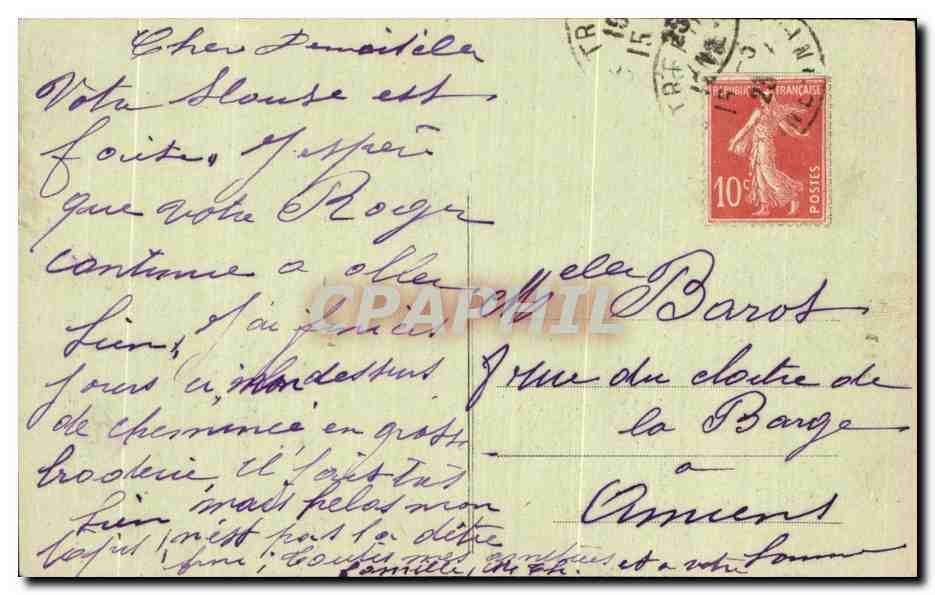 Cher Demoiselle
Votre blouse est
faite, J'espère
que votre Roger
continue a aller
bien, J'ai fini ces
jours ci, mon dessus
de cheminée en grosse
broderie, il fait très
bien, mais helas mon
tapis, n'est pas la d'être
fini, toutes mes amitiés
et a votre homme
Camille,
Melle Barot
7 rue du cloitre de
la Barge
a
Amiens
REPUBLIQUE FRANÇAISE
10c
POSTES
CPAPHIL